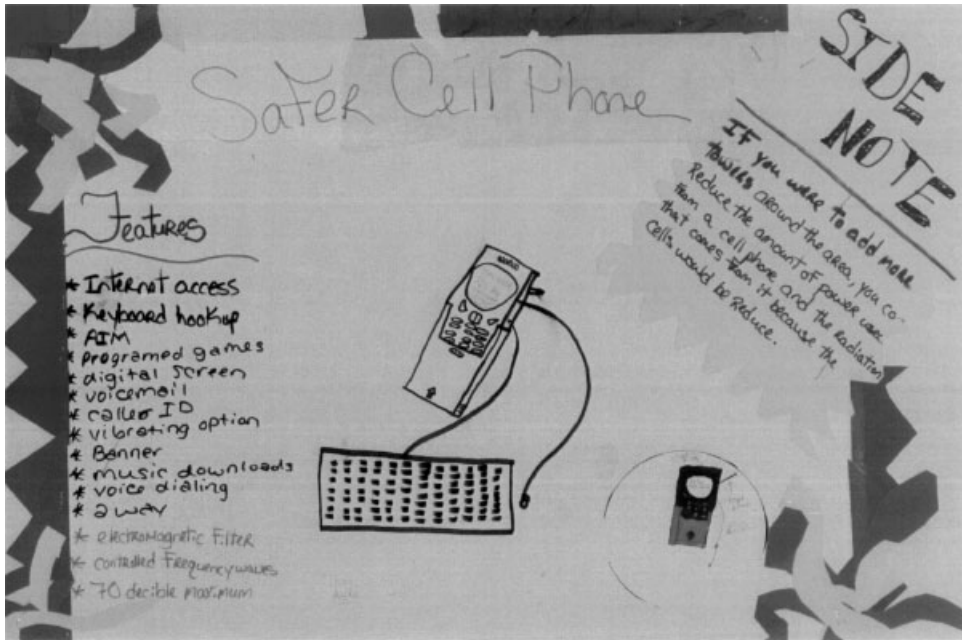 Safer Cell Phone
SIDE
NOTE
IF you were to add more
towers around the area, you co-
Reduce the amount of power use
from a cell phone and the Radiation
that comes from it because the
cells would be Reduce.
Features
* Internet access
* Keyboard hookup
* AIM
* programed games
* digital screen
* voicemail
* caller ID
* vibrating option
* Banner
* music downloads
* voice dialing
* 2 way
* electromagnetic Filter
* controlled Frequency waves
* 70 decible maximum